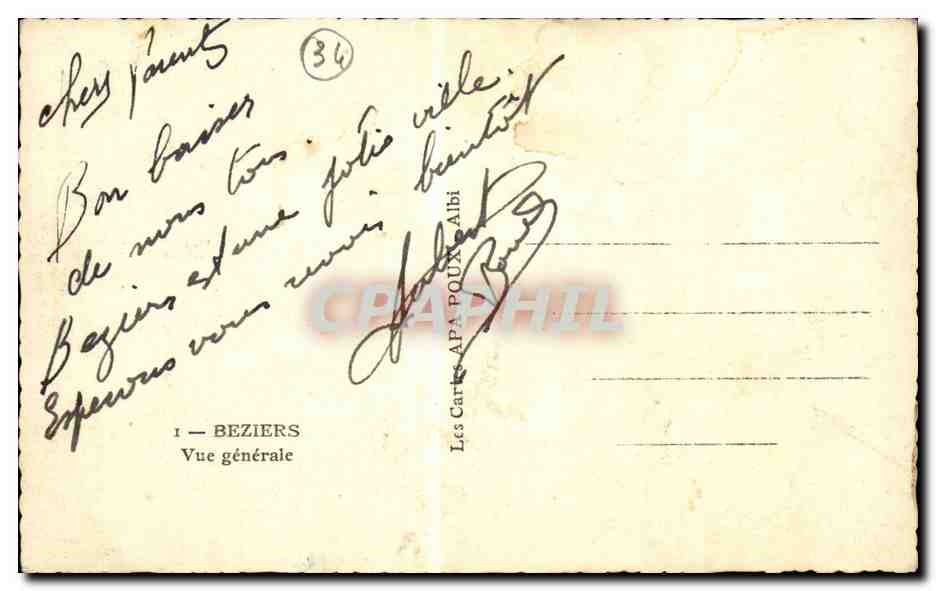 34
chers Parents
Bon baiser
de nous tous.
Beziers est une jolie ville.
Esperons vous revoir bientôt
1 — BEZIERS
Vue générale
Les Cartes APA POUX — Albi
CPAPHIL